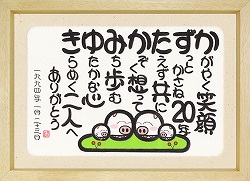 かがやく笑顔
ずっとかさね20年
たえず共に
かぞく想って
みち歩む
ゆたかな心
きらめく二人へ
ありがとう
一九九四年